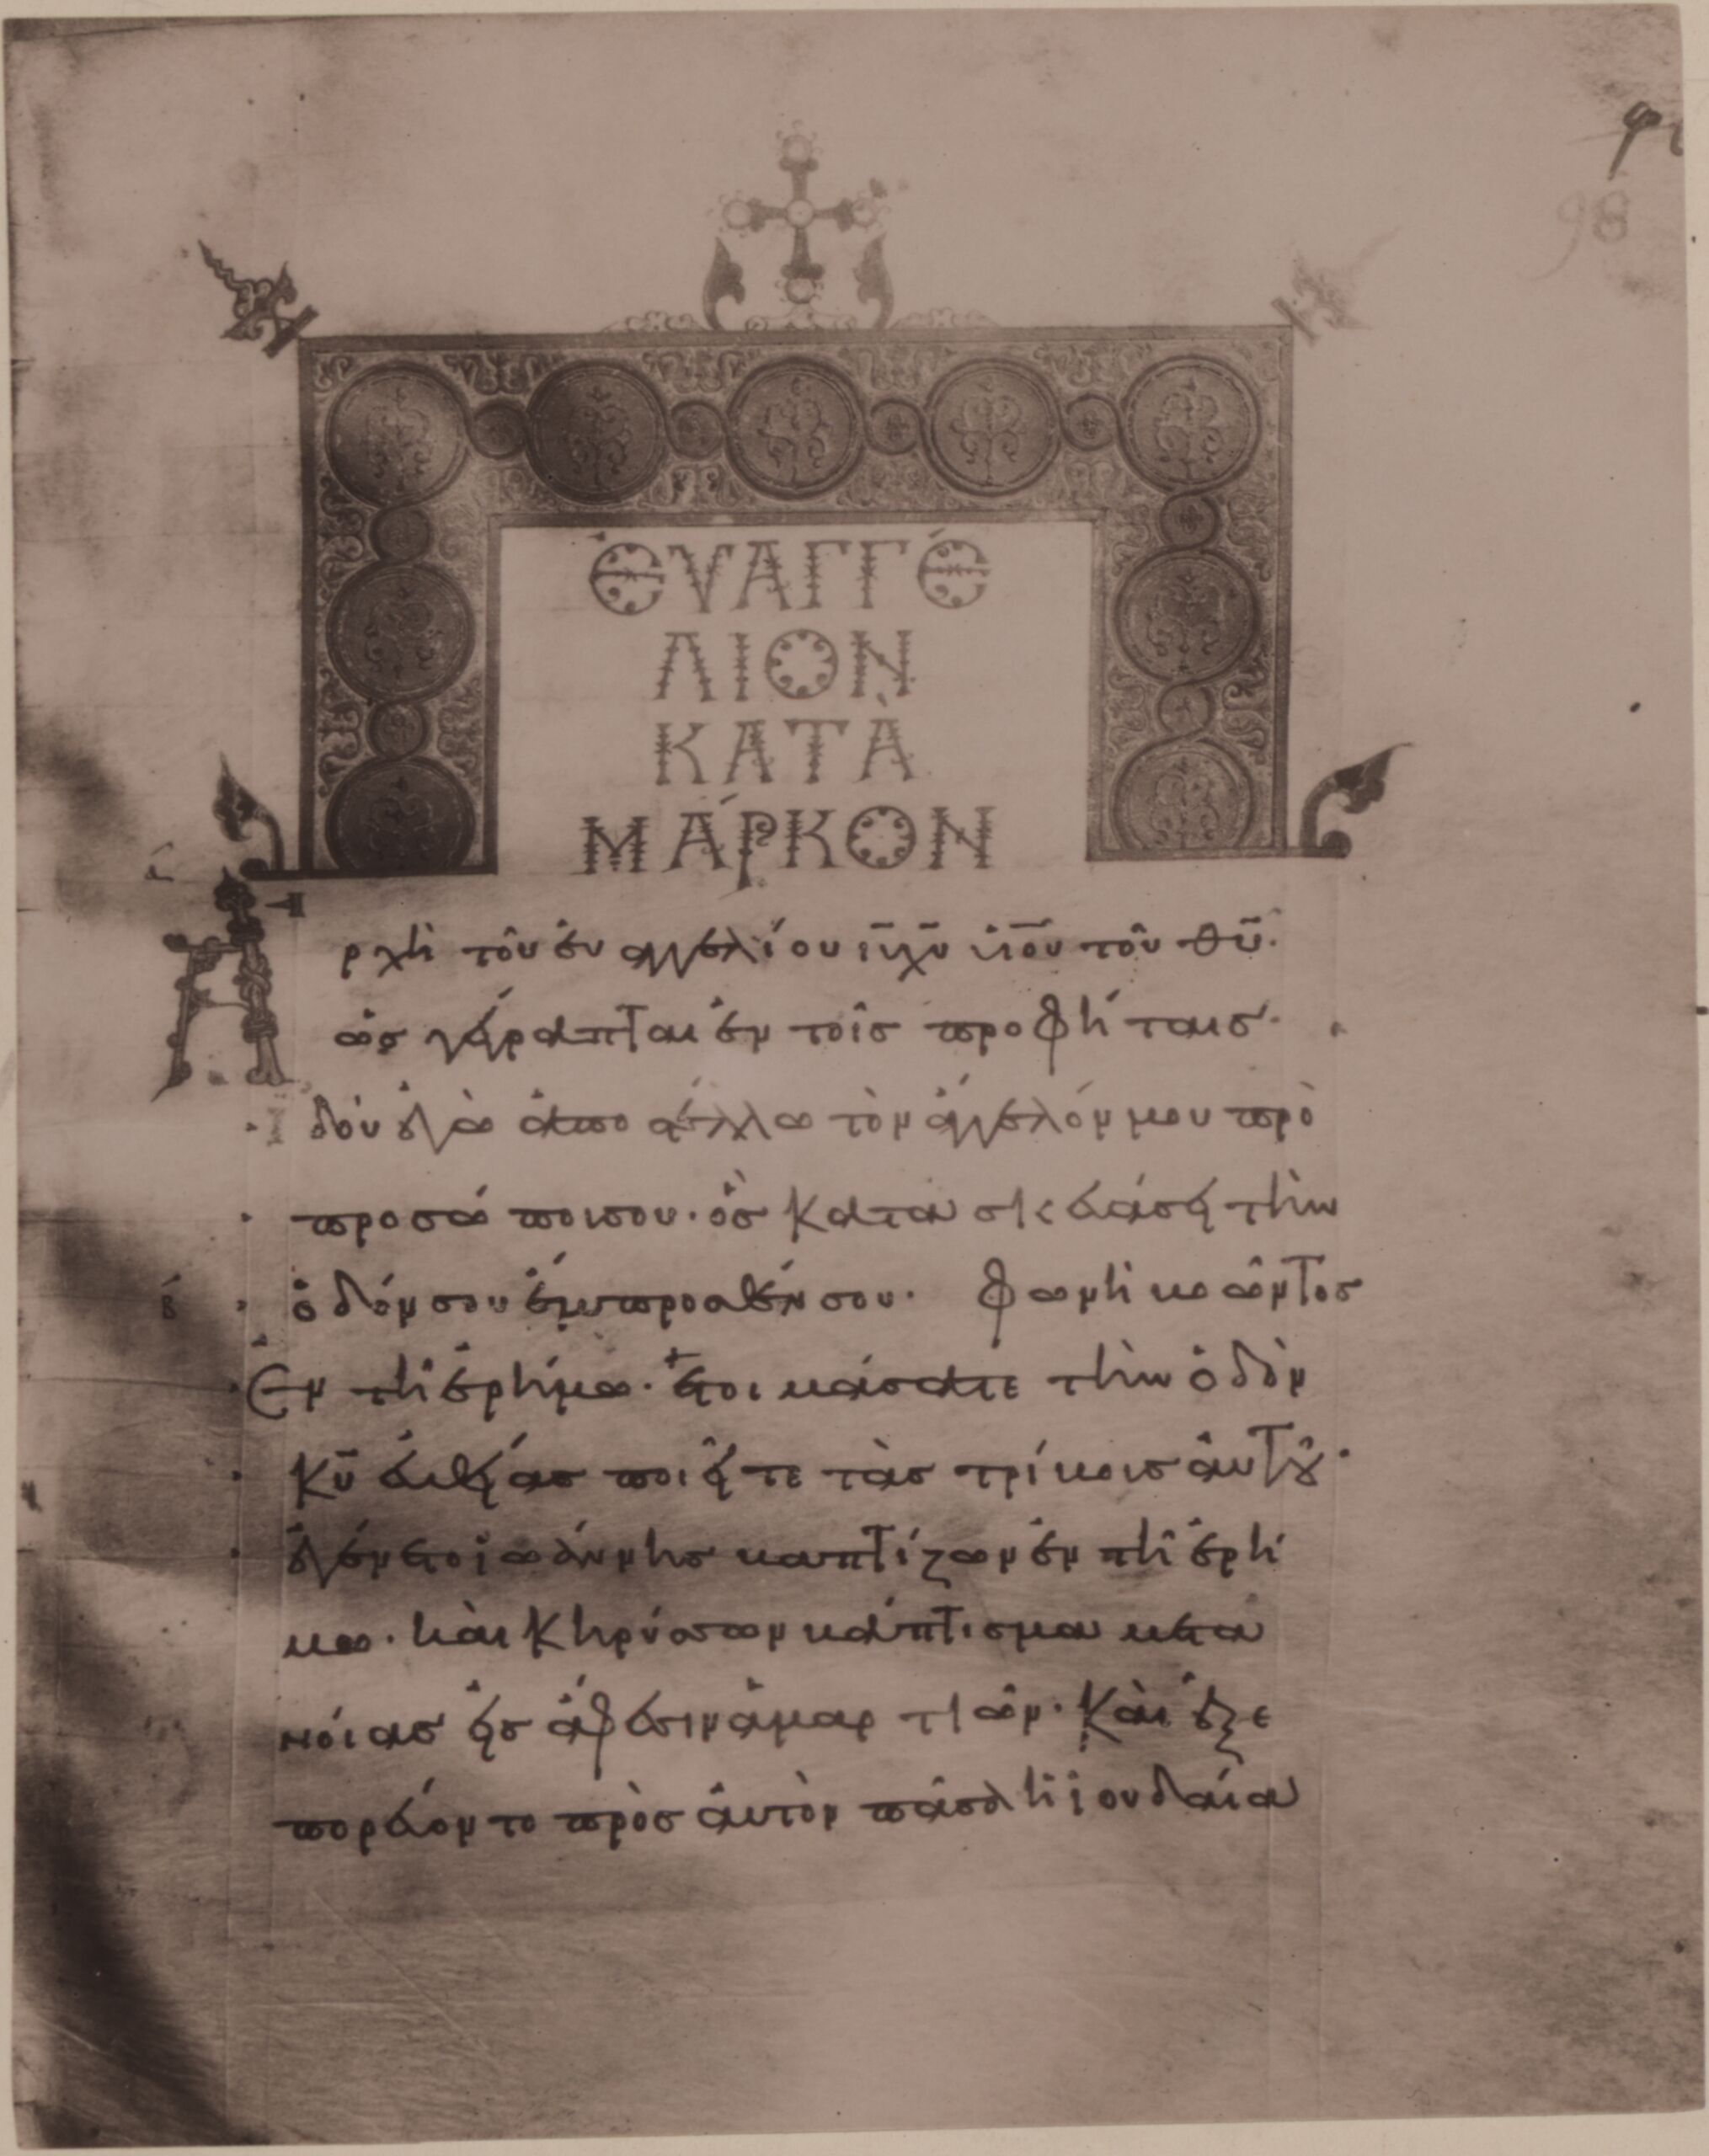 98
ΕΥΑΓΓΕ
ΛΙΟΝ
ΚΑΤᾺ
ΜΆΡΚΟΝ
Ἀρχὴ τοῦ ἐυαγγελίου ιυ χυ ὑιοῦ τοῦ θυ.
ὡς γέγραπται ἐν τοῖς προφήταις·
Ἰδοὺ ἐγὼ ἀποστέλλω τὸν ἄγγελόν μου πρὸ
προσώπου σου· ὃς κατασκευάσει τὴν
ὁδόν σου ἔμπροσθέν σου· Φωνὴ βοῶντος
Ἐν τῇ ἐρήμω· ἑτοιμάσατε τὴν ὁδὸν
κυ ἐυθείας ποιεῖτε τὰς τρίβους ἀυτοῦ·
ἐγένετο ἰωάννης βαπτίζων ἐν τῇ ἐρή
μω· καὶ κηρύσσων βάπτισμα μετα
νοίας εἰς ἄφεσιν ἁμαρτιῶν· Καὶ ἐξε
πορεύοντο πρὸς ἀυτὸν πᾶσα ἡ ἰουδαία